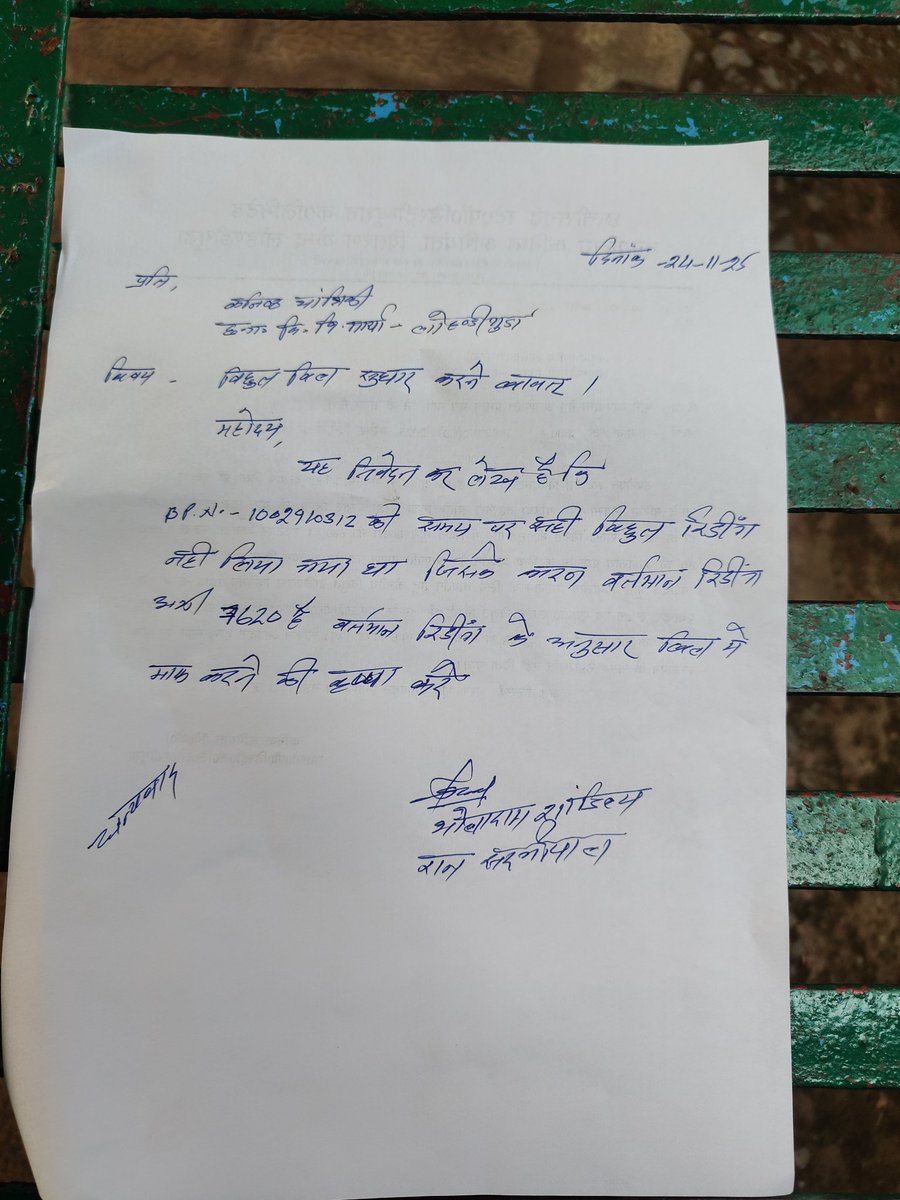 दिनांक -24-11-25
प्रति,
कनिष्ठ यांत्रिकी
वि. कार्या - लोहण्डीगुडा
विषय - विद्युत बिल सुधार करने बाबत ।
महोदय,
यह निवेदन कर लेख है कि
BP.N.- 1002910312 को समय पर सही विद्युत रिडींग
नही लिया गया था जिसके कारन वर्तमान रिडींग
अभी 7620 है वर्तमान रिडींग के अनुसार बिल मे
माफ करने की कृपा करे
धन्यवाद
शांडिल्य